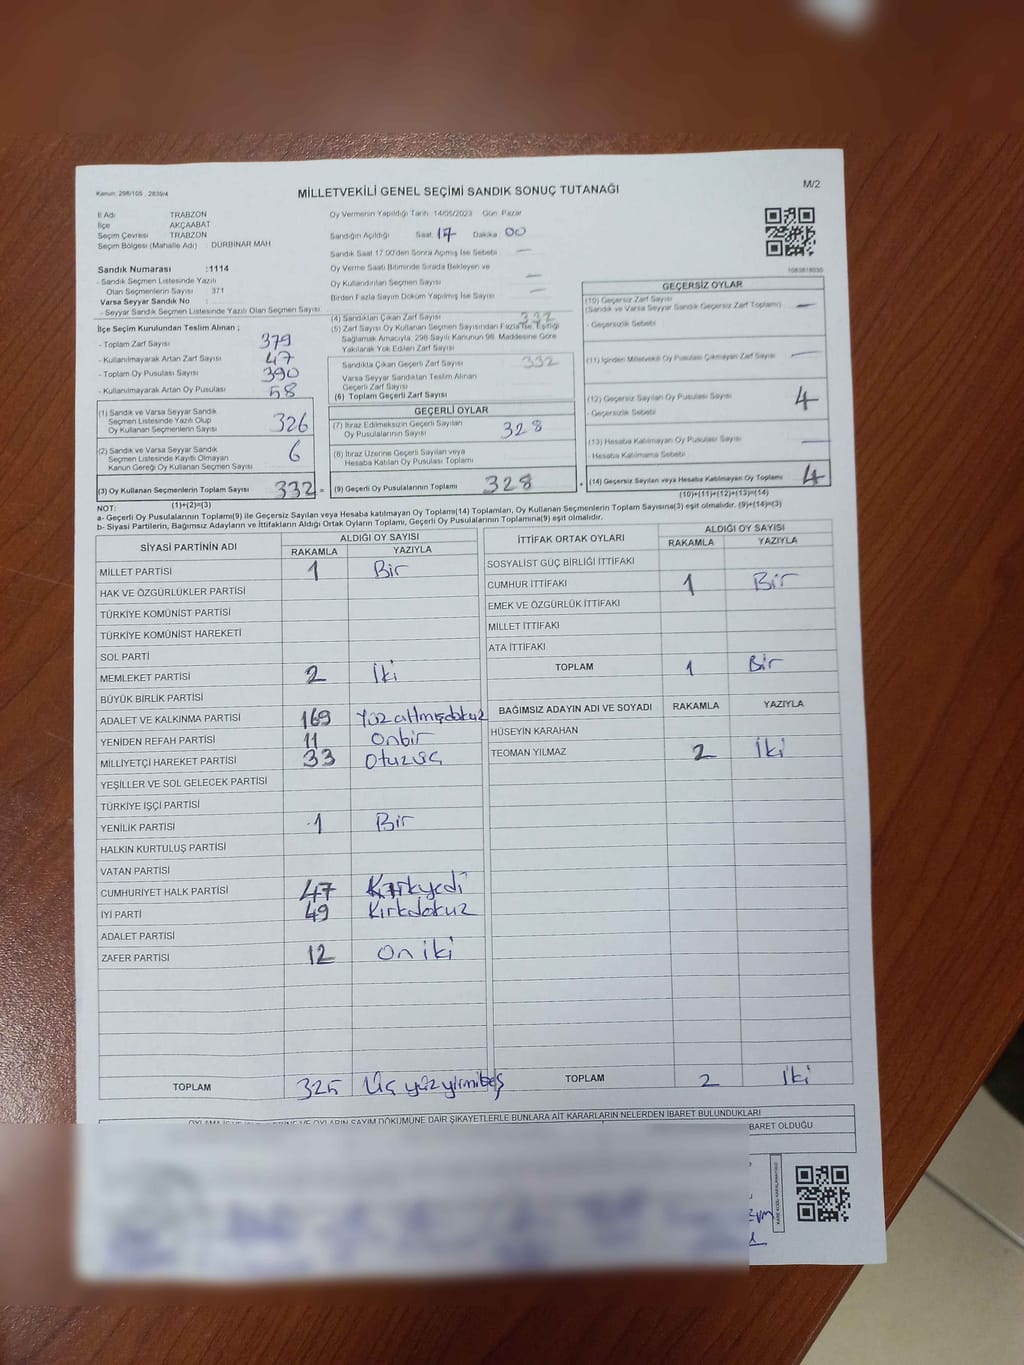 Kanun: 298/105 . 2839/4
MİLLETVEKİLİ GENEL SEÇİMİ SANDIK SONUÇ TUTANAĞI
M/2
İl Adı TRABZON
İlçe AKÇAABAT
Seçim Çevresi TRABZON
Seçim Bölgesi (Mahalle Adı) DÜRBİNAR MAH
Sandık Numarası :1114
- Sandık Seçmen Listesinde Yazılı
Olan Seçmenlerin Sayısı 371
Varsa Seyyar Sandık No :
- Seyyar Sandık Seçmen Listesinde Yazılı Olan Seçmen Sayısı
Oy Vermenin Yapıldığı Tarih 14/05/2023 Gün: Pazar
Sandığın Açıldığı Saat 17 Dakika 00
Sandık Saat 17.00'den Sonra Açılmış İse Sebebi —
Oy Verme Saati Bitiminde Sırada Bekleyen ve
Oy Kullandırılan Seçmen Sayısı —
Birden Fazla Sayım Döküm Yapılmış İse Sayısı —
1083818030
İlçe Seçim Kurulundan Teslim Alınan ;
- Toplam Zarf Sayısı 379
- Kullanılmayarak Artan Zarf Sayısı 47
- Toplam Oy Pusulası Sayısı 390
- Kullanılmayarak Artan Oy Pusulası 58
(1) Sandık ve Varsa Seyyar Sandık
Seçmen Listesinde Yazılı Olup
Oy Kullanan Seçmenlerin Sayısı 326
(2) Sandık ve Varsa Seyyar Sandık
Seçmen Listesinde Kayıtlı Olmayan
Kanun Gereği Oy Kullanan Seçmen Sayısı 6
(3) Oy Kullanan Seçmenlerin Toplam Sayısı 332 =
(1)+(2)=(3)
(4) Sandıktan Çıkan Zarf Sayısı 332
(5) Zarf Sayısı Oy Kullanan Seçmen Sayısından Fazla İse, Eşitliği
Sağlamak Amacıyla, 298 Sayılı Kanunun 98. Maddesine Göre
Yakılarak Yok Edilen Zarf Sayısı
Sandıkta Çıkan Geçerli Zarf Sayısı 332
Varsa Seyyar Sandıktan Teslim Alınan
Geçerli Zarf Sayısı
(6) Toplam Geçerli Zarf Sayısı
GEÇERLİ OYLAR
(7) İtiraz Edilmeksizin Geçerli Sayılan
Oy Pusulalarının Sayısı 328
(8) İtiraz Üzerine Geçerli Sayılan veya
Hesaba Katılan Oy Pusulası Toplamı
(9) Geçerli Oy Pusulalarının Toplamı 328 +
GEÇERSİZ OYLAR
(10) Geçersiz Zarf Sayısı
(Sandık ve Varsa Seyyar Sandık Geçersiz Zarf Toplamı) —
- Geçersizlik Sebebi :
(11) İçinden Milletvekili Oy Pusulası Çıkmayan Zarf Sayısı —
(12) Geçersiz Sayılan Oy Pusulası Sayısı 4
- Geçersizlik Sebebi :
(13) Hesaba Katılmayan Oy Pusulası Sayısı —
- Hesaba Katılmama Sebebi :
(14) Geçersiz Sayılan veya Hesaba Katılmayan Oy Toplamı 4
(10)+(11)+(12)+(13)=(14)
NOT:
a- Geçerli Oy Pusulalarının Toplamı(9) ile Geçersiz Sayılan veya Hesaba katılmayan Oy Toplamı(14) Toplamları, Oy Kullanan Seçmenlerin Toplam Sayısına(3) eşit olmalıdır. (9)+(14)=(3)
b- Siyasi Partilerin, Bağımsız Adayların ve İttifakların Aldığı Ortak Oyların Toplamı, Geçerli Oy Pusulalarının Toplamına(9) eşit olmalıdır.
SİYASİ PARTİNİN ADI ALDIĞI OY SAYISI
RAKAMLA YAZIYLA
MİLLET PARTİSİ 1 Bir
HAK VE ÖZGÜRLÜKLER PARTİSİ
TÜRKİYE KOMÜNİST PARTİSİ
TÜRKİYE KOMÜNİST HAREKETİ
SOL PARTİ
MEMLEKET PARTİSİ 2 İki
BÜYÜK BİRLİK PARTİSİ
ADALET VE KALKINMA PARTİSİ 169 Yüzaltmışdokuz
YENİDEN REFAH PARTİSİ 11 Onbir
MİLLİYETÇİ HAREKET PARTİSİ 33 Otuzüç
YEŞİLLER VE SOL GELECEK PARTİSİ
TÜRKİYE İŞÇİ PARTİSİ
YENİLİK PARTİSİ 1 Bir
HALKIN KURTULUŞ PARTİSİ
VATAN PARTİSİ
CUMHURİYET HALK PARTİSİ 47 Kırkyedi
İYİ PARTİ 49 Kırkdokuz
ADALET PARTİSİ
ZAFER PARTİSİ 12 On iki
TOPLAM 325 Üç yüz yirmibeş
İTTİFAK ORTAK OYLARI ALDIĞI OY SAYISI
RAKAMLA YAZIYLA
SOSYALİST GÜÇ BİRLİĞİ İTTİFAKI
CUMHUR İTTİFAKI 1 Bir
EMEK VE ÖZGÜRLÜK İTTİFAKI
MİLLET İTTİFAKI
ATA İTTİFAKI
TOPLAM 1 Bir
BAĞIMSIZ ADAYIN ADI VE SOYADI RAKAMLA YAZIYLA
HÜSEYİN KARAHAN
TEOMAN YILMAZ 2 İki
TOPLAM 2 İki
SAYIM DÖKÜMÜNE DAİR ŞİKAYETLERLE BUNLARA AİT KARARLARIN NELERDEN İBARET BULUNDUKLARI
BARET OLDUĞU